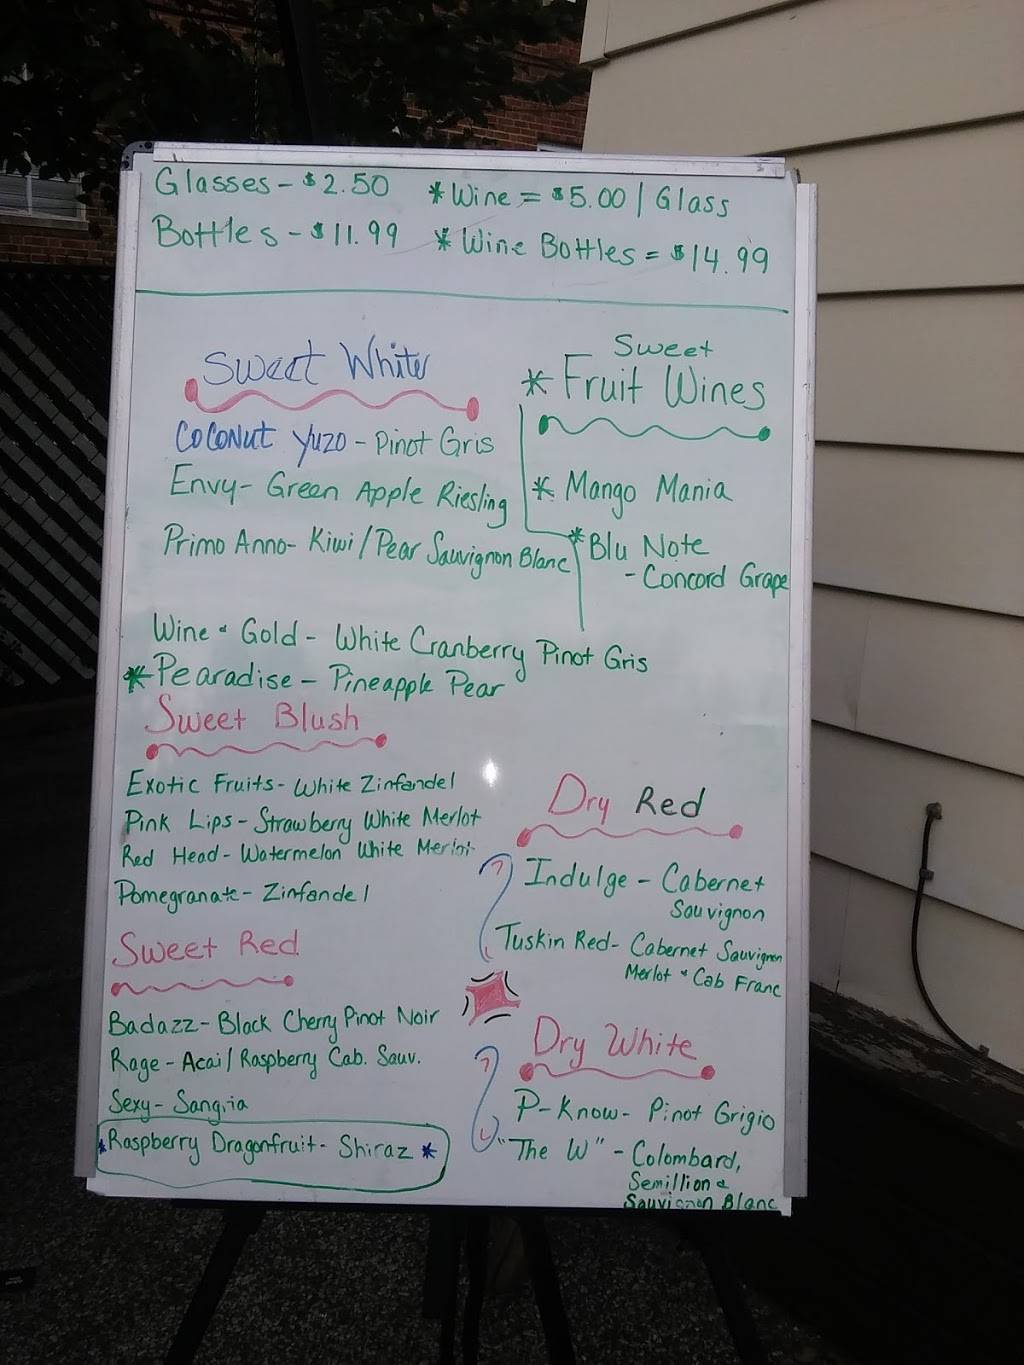 Glasses - $2.50 *Wine = $5.00 / Glass
Bottles - $11.99 *Wine Bottles = $14.99
Sweet White
Coconut Yuzo - Pinot Gris
Envy - Green Apple Riesling
Primo Anno - Kiwi / Pear Sauvignon Blanc
Sweet
* Fruit Wines
* Mango Mania
* Blu Note
- Concord Grape
Wine & Gold - White Cranberry Pinot Gris
* Pearadise - Pineapple Pear
Sweet Blush
Exotic Fruits - White Zinfandel
Pink Lips - Strawberry White Merlot
Red Head - Watermelon White Merlot
Pomegranate - Zinfandel
Sweet Red
Badazz - Black Cherry Pinot Noir
Rage - Acai / Raspberry Cab. Sauv.
Sexy - Sangria
* Raspberry Dragonfruit - Shiraz *
Dry Red
Indulge - Cabernet
Sauvignon
Tuskin Red - Cabernet Sauvignon
Merlot & Cab Franc
Dry White
P-Know - Pinot Grigio
"The W" - Colombard,
Semillion &
Sauvignon Blanc